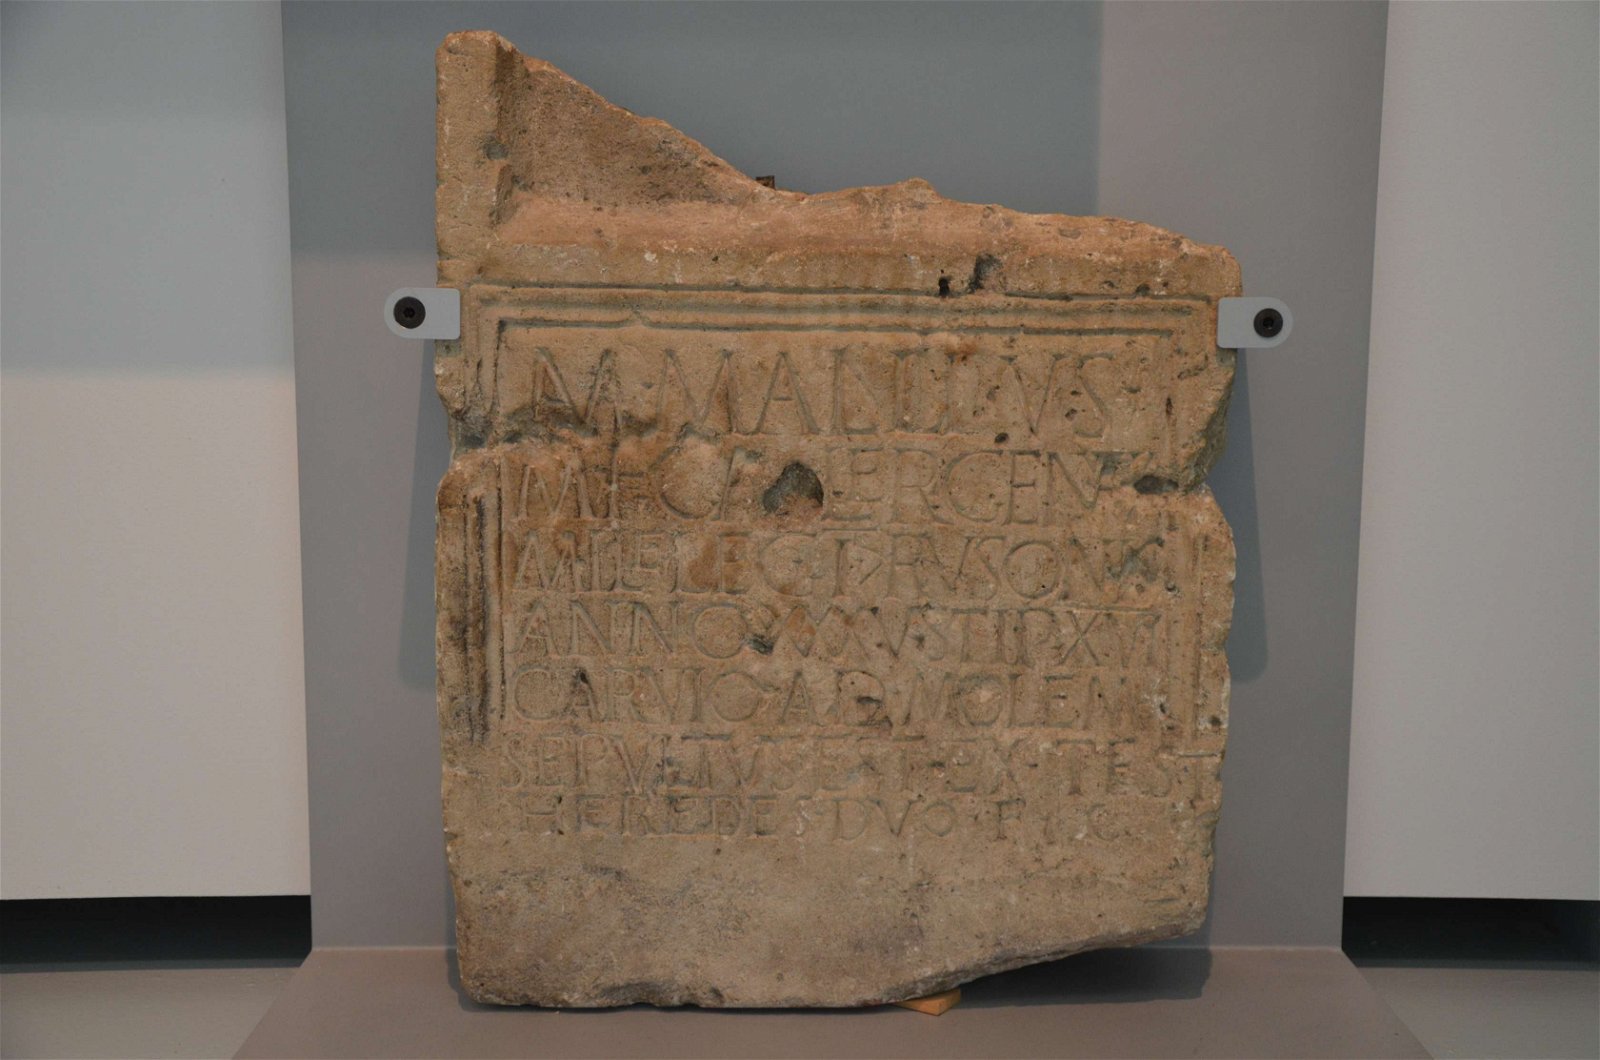 M · MALLIVS
M · F · GALER · GENVA
MILES · LEG · I · > · RVSONIS
ANNO · XXXV · STIP · XVI
CARVIO · AD · MOLEM
SEPVLTVS · EST · EX · TEST
HEREDES · DVO · F · C